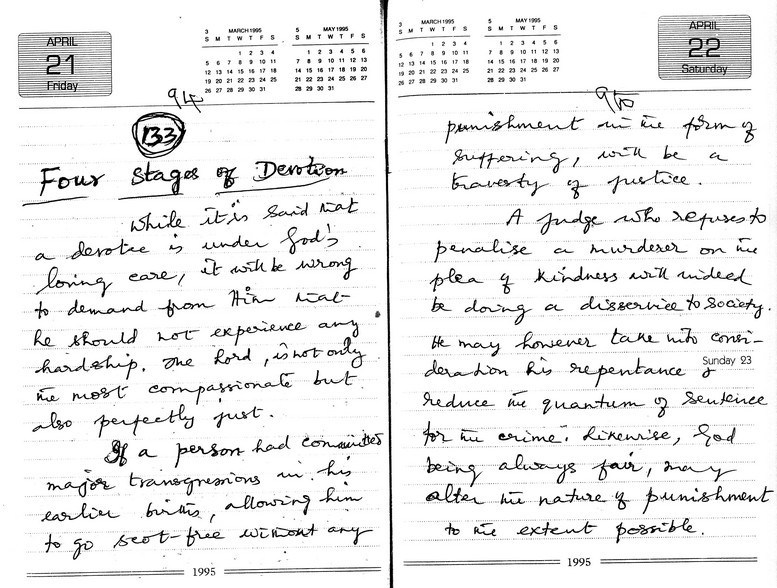 APRIL
21
Friday
3 MARCH 1995
S M T W T F S
1 2 3 4
5 6 7 8 9 10 11
12 13 14 15 16 17 18
19 20 21 22 23 24 25
26 27 28 29 30 31
5 MAY 1995
S M T W T F S
1 2 3 4 5 6
7 8 9 10 11 12 13
14 15 16 17 18 19 20
21 22 23 24 25 26 27
28 29 30 31
94
133
Four Stages of Devotion
While it is said that
a devotee is under God's
loving care, it will be wrong
to demand from Him that
he should not experience any
hardship. The Lord, is not only
the most compassionate but
also perfectly just.
If a person had committed
major transgressions in his
earlier births, allowing him
to go scot-free without any
1995
3 MARCH 1995
S M T W T F S
1 2 3 4
5 6 7 8 9 10 11
12 13 14 15 16 17 18
19 20 21 22 23 24 25
26 27 28 29 30 31
5 MAY 1995
S M T W T F S
1 2 3 4 5 6
7 8 9 10 11 12 13
14 15 16 17 18 19 20
21 22 23 24 25 26 27
28 29 30 31
APRIL
22
Saturday
95
punishment in the form of
suffering, will be a
travesty of justice.
A Judge who refuses to
penalise a murderer on the
plea of kindness will indeed
be doing a disservice to society.
He may however take into consi-
Sunday 23
deration his repentance &
reduce the quantum of sentence
for the crime. Likewise, God
being always fair, may
alter the nature of punishment
to the extent possible.
1995